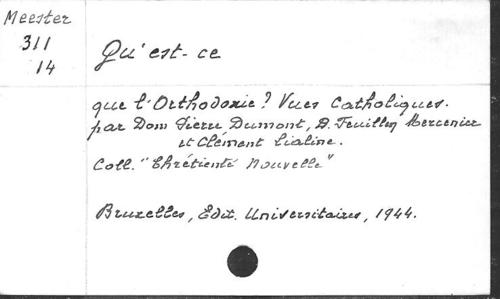 Meester
311
14
Qu'est-ce
que l'Orthodoxie? Vues Catholiques.
par Dom Pierre Dumont, D. Feuillen Mercenier
et Clément Lialine.
Coll. "Chrétienté Nouvelle"
Bruxelles, Edit. Universitaires, 1944.